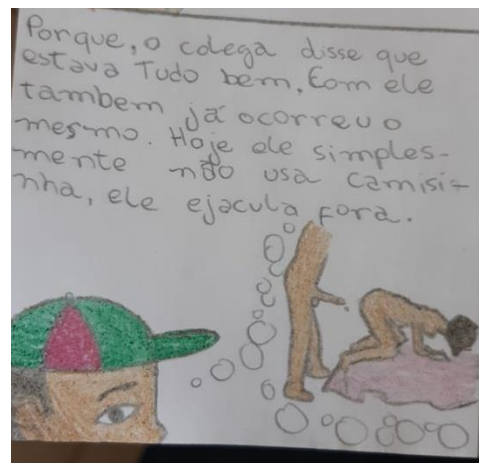 Porque, o colega disse que
estava Tudo bem. Com ele
tambem já ocorreu o
mesmo. Hoje ele simples-
mente não usa camisi-
nha, ele ejacula fora.